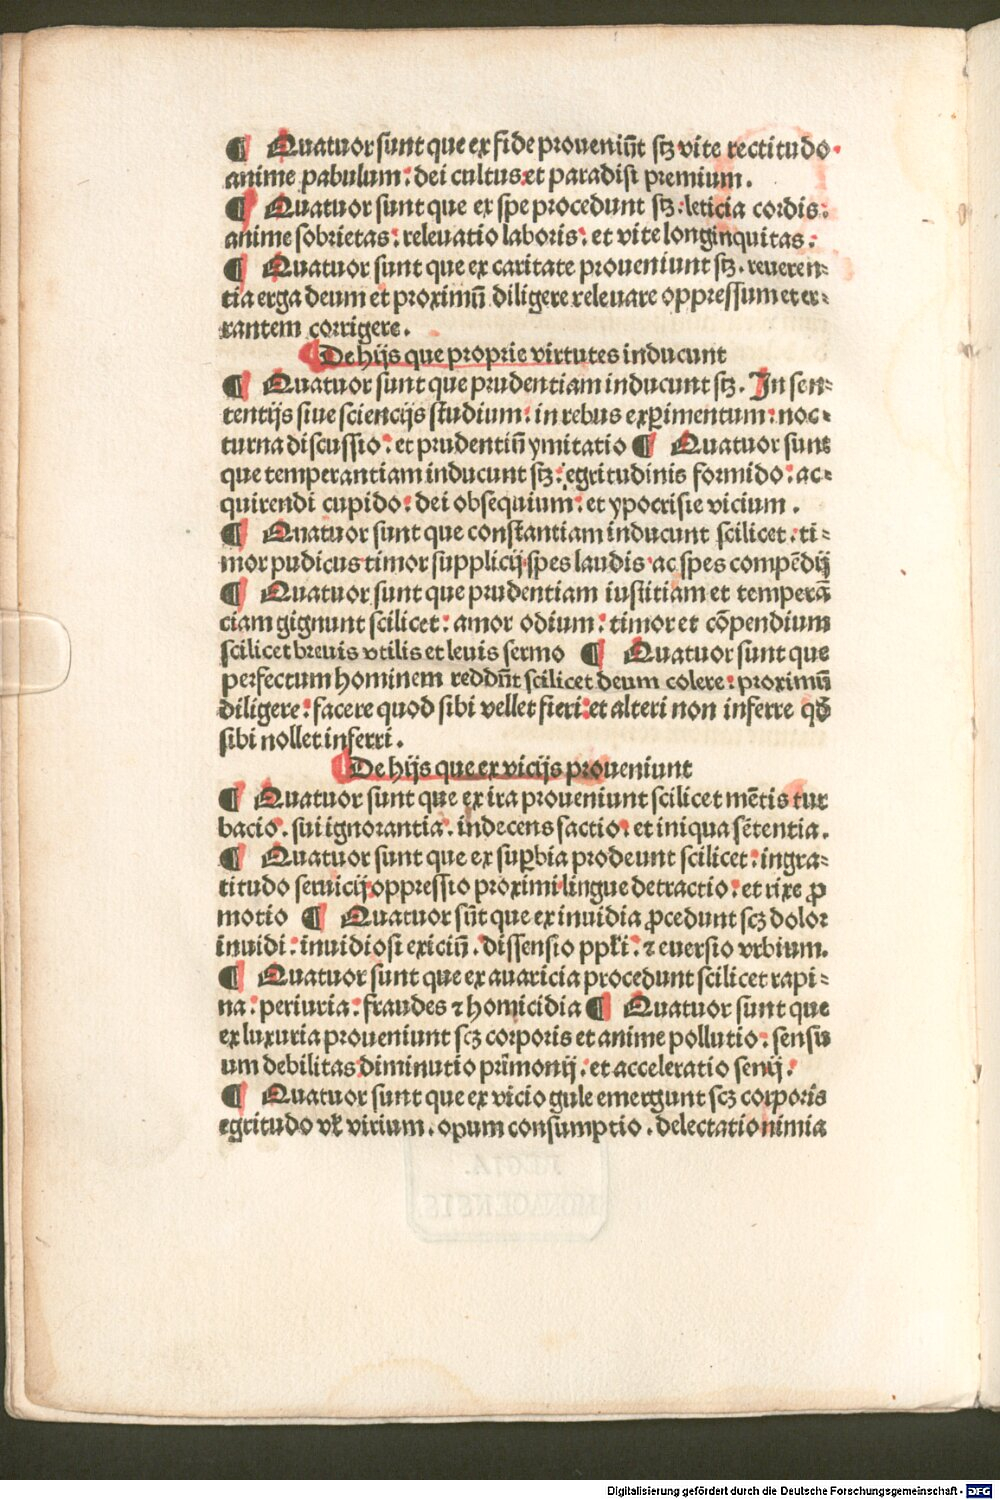 ¶ Quatuor sunt que ex fide proueniūt stꝫ vite rectitudo
anime pabulum: dei cultus et paradisi premium.
¶ Quatuor sunt que ex spe procedunt stꝫ: leticia cordis:
anime sobrietas: releuatio laboris: et vite longinquitas:
¶ Quatuor sunt que ex caritate proueniunt stꝫ. reueren⸗
tia erga deum et proximū diligere releuare oppressum et er⸗
rantem corrigere.
¶ De hijs que proprie virtutes inducunt
¶ Quatuor sunt que prudentiam inducunt stꝫ. In sen⸗
tentijs siue sciencijs studium: in rebus exꝑimentum: noc⸗
turna discussio: et prudentiū ymitatio ¶ Quatuor sunt
que temperantiam inducunt stꝫ: egritudinis formido: ac⸗
quirendi cupido: dei obsequium: et ypocrisie vicium.
¶ Quatuor sunt que constantiam inducunt scilicet. ti⸗
mor pudicus timor supplicij spes laudis ac spes compēdij
¶ Quatuor sunt que prudentiam iustitiam et temperā
ciam gignunt scilicet: amor odium: timor et cōpendium
scilicet breuis vtilis et leuis sermo ¶ Quatuor sunt que
perfectum hominem reddūt scilicet deum colere: proximū
diligere: facere quod sibi vellet fieri: et alteri non inferre qđ
sibi nollet inferri.
¶ De hijs que ex vicijs proueniunt
¶ Quatuor sunt que ex ira proueniunt scilicet mētis tur
bacio. sui ignorantia. indecens factio: et iniqua sētentia.
¶ Quatuor sunt que ex suꝑbia prodeunt scilicet: ingra⸗
titudo seruicij oppressio proximi lingue detractio: et rixe ꝓ
motio ¶ Quatuor sūt que ex inuidia ꝓcedunt scꝫ dolor
inuidi: inuidiosi exiciū. dissensio ppłi: ⁊ euersio vrbium.
¶ Quatuor sunt que ex auaricia procedunt scilicet rapi⸗
na: periuria: fraudes ⁊ homicidia ¶ Quatuor sunt que
ex luxuria proueniunt scꝫ corporis et anime pollutio: sensu
um debilitas diminutio pr̄imonij: et acceleratio senij:
¶ Quatuor sunt que ex vicio gule emergunt scꝫ corporis
egritudo vł virium. opum consumptio. delectatio nimia
REGIA.
MONACENSIS.
Digitalisierung gefördert durch die Deutsche Forschungsgemeinschaft - DFG